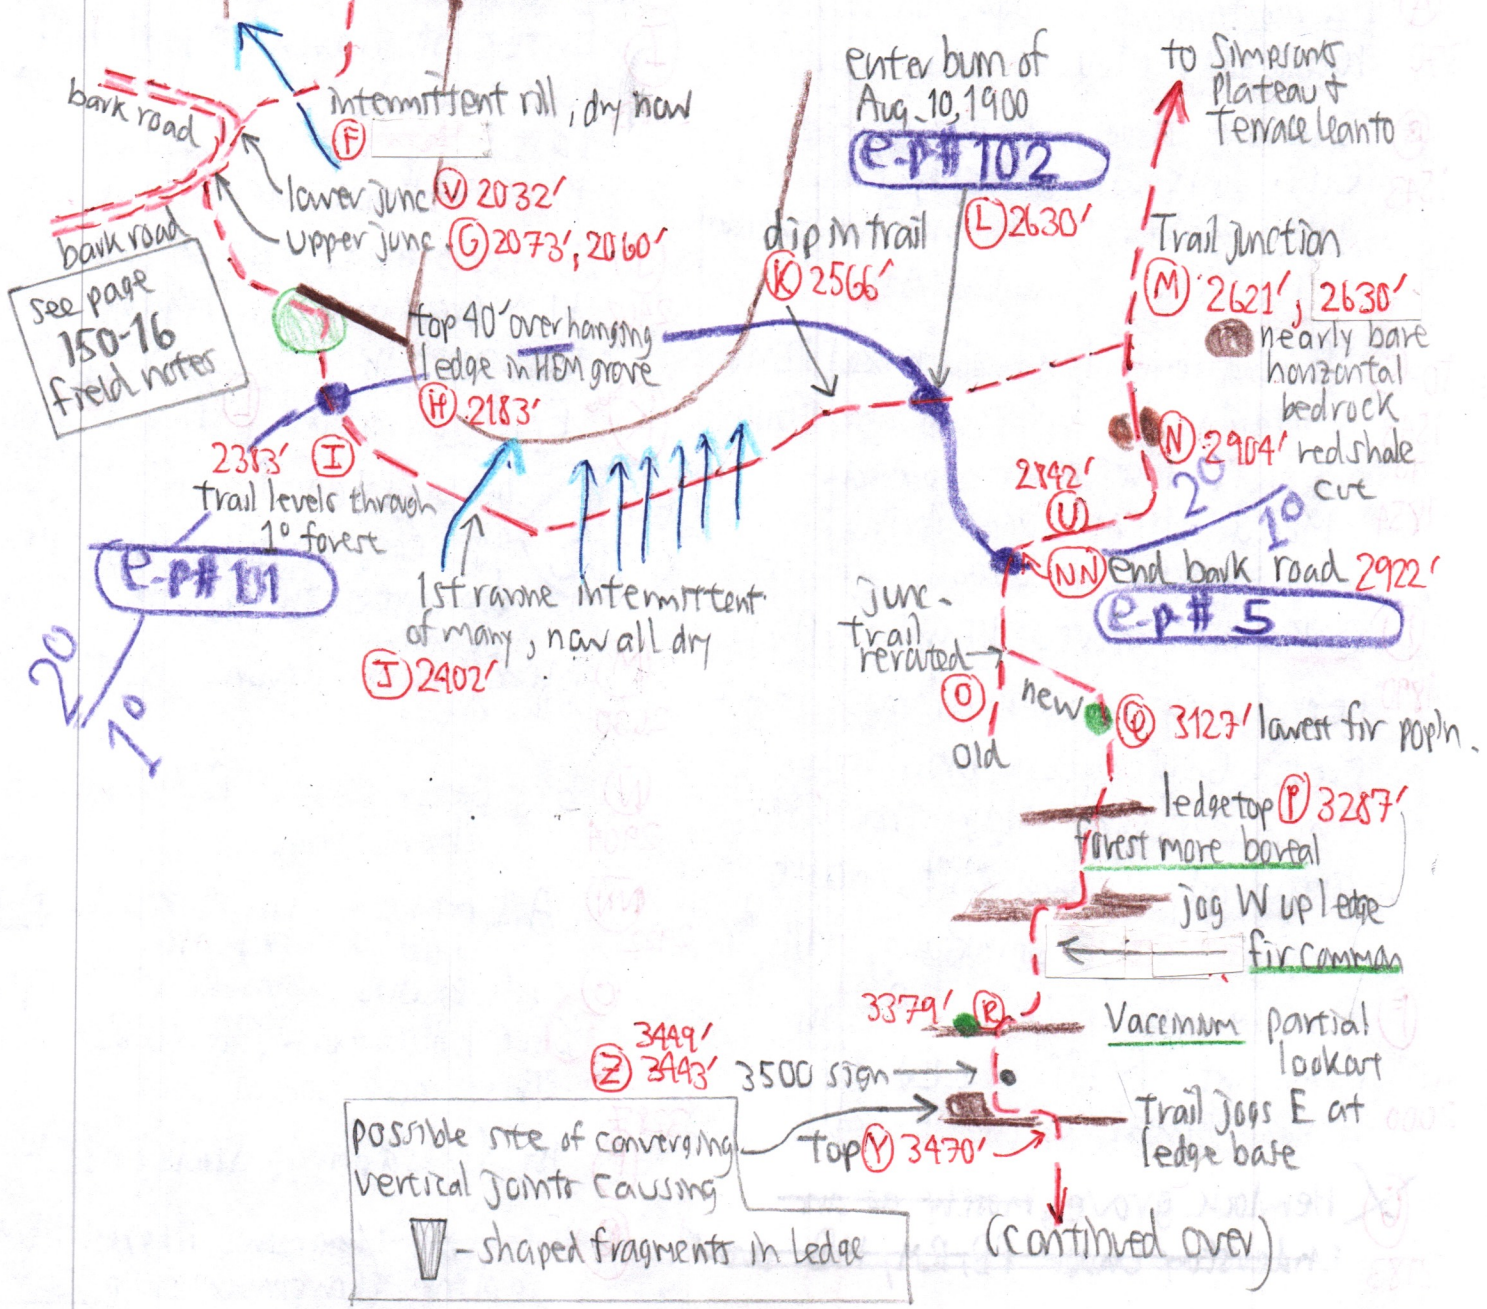 bark road
intermittent rill, dry now
F
lower junc V 2032'
upper junc. G 2073', 2060'
bark road
see page
150-16
field notes
top 40' overhanging
ledge in HEM grove
H 2183'
2383' I
trail levels through
1° forest
e-p# 101
2°
1°
1st ravine intermittent
of many, now all dry
J 2402'
dip in trail
K 2566'
enter burn of
Aug. 10, 1900
e-p# 102
L 2630'
to Simpsons
Plateau &
Terrace leanto
Trail junction
M 2621', 2630'
nearly bare
horizontal
bedrock
N 2904' red shale
cut
2842'
U
2°
1°
NN end bark road 2922'
e-p# 5
junc.
trail
rerouted
O
new
old
Q 3127' lowest fir pop'n.
ledgetop P 3287'
forest more boreal
jog W up ledge
fir common
3379' R
Vaccinium partial
lookout
3449'
Z 3443'
3500 sign
trail jogs E at
ledge base
top Y 3470'
possible site of converging
vertical joints causing
- shaped fragments in ledge
(continued over)